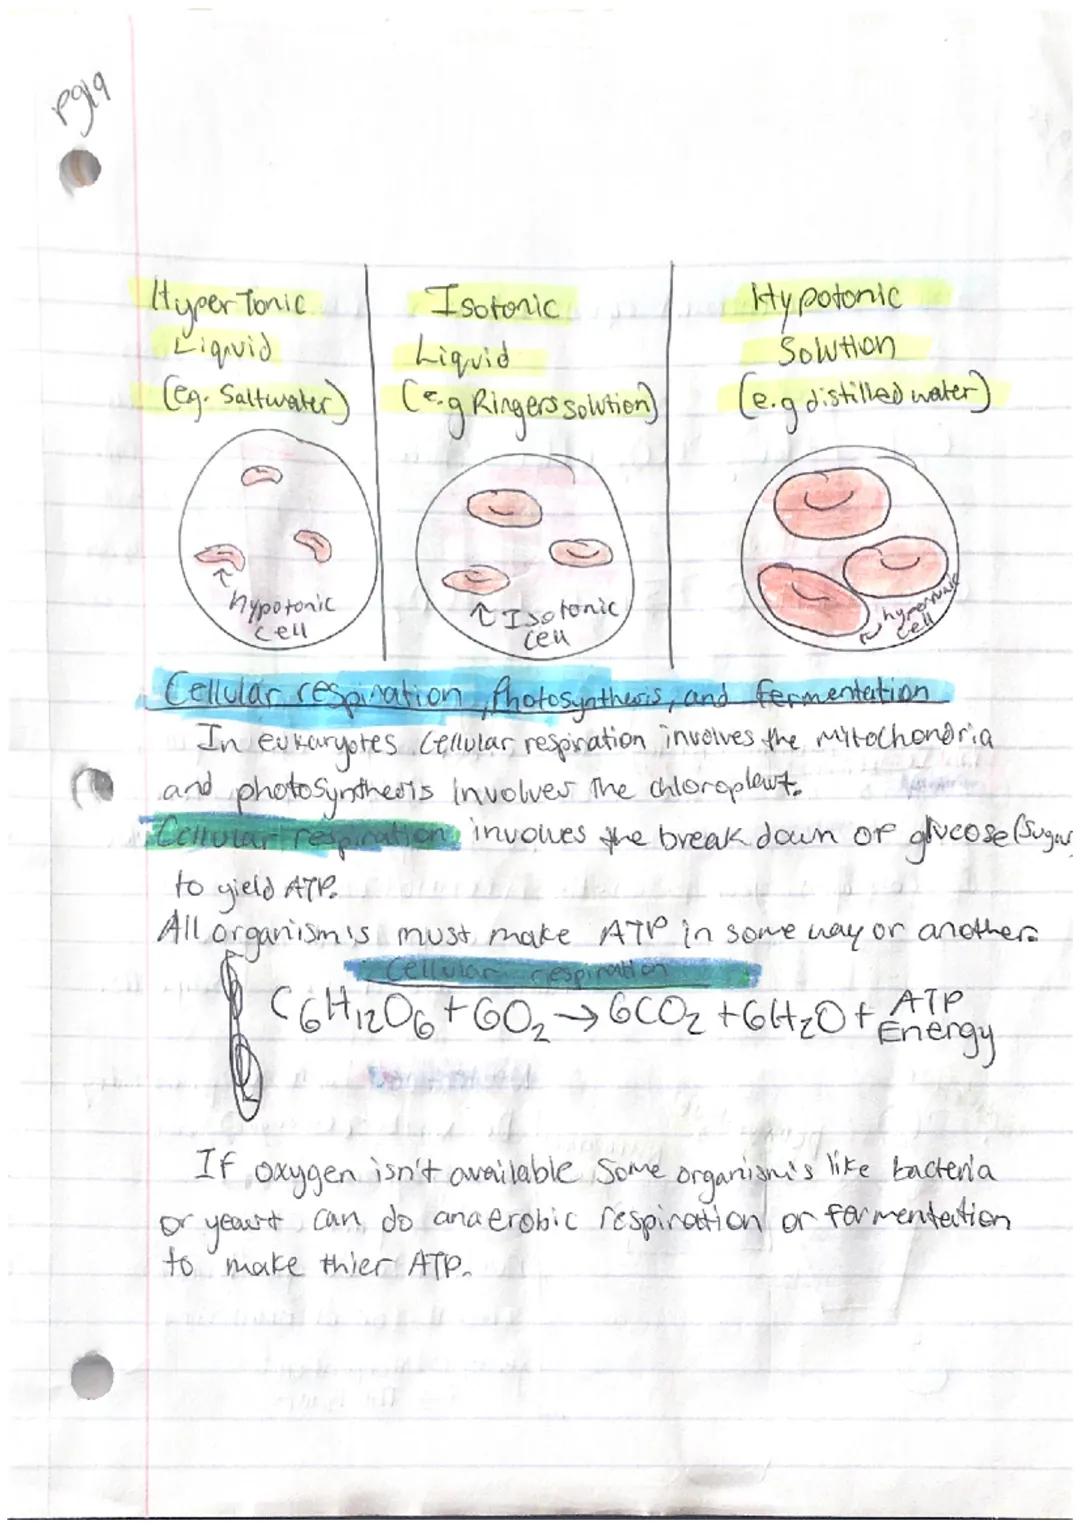 pg19
HyperTonic
Liquid
(eg. Saltwater)
Isotonic
Liquid
(e.g Ringers solution)
Hypotonic
Solution
(e.g distilled water)
↑
hypotonic
cell
↑ Isotonic
cell
hypertonic
cell
Cellular respiration, Photosynthesis, and fermentation
In eukaryotes cellular respiration involves the mitochondria
and photosynthesis involves the chloroplast.
Cellular respiration involves the break down of glucose (Sugar
to yield ATP.
All organism's must make ATP in some way or another.
Cellular respiration
C6H12O6 + 6O2 → 6CO2 + 6H2O + ATP
Energy
If oxygen isn't available Some organism's like bacteria
or yeast can do anaerobic respiration or fermentation
to make thier ATP.